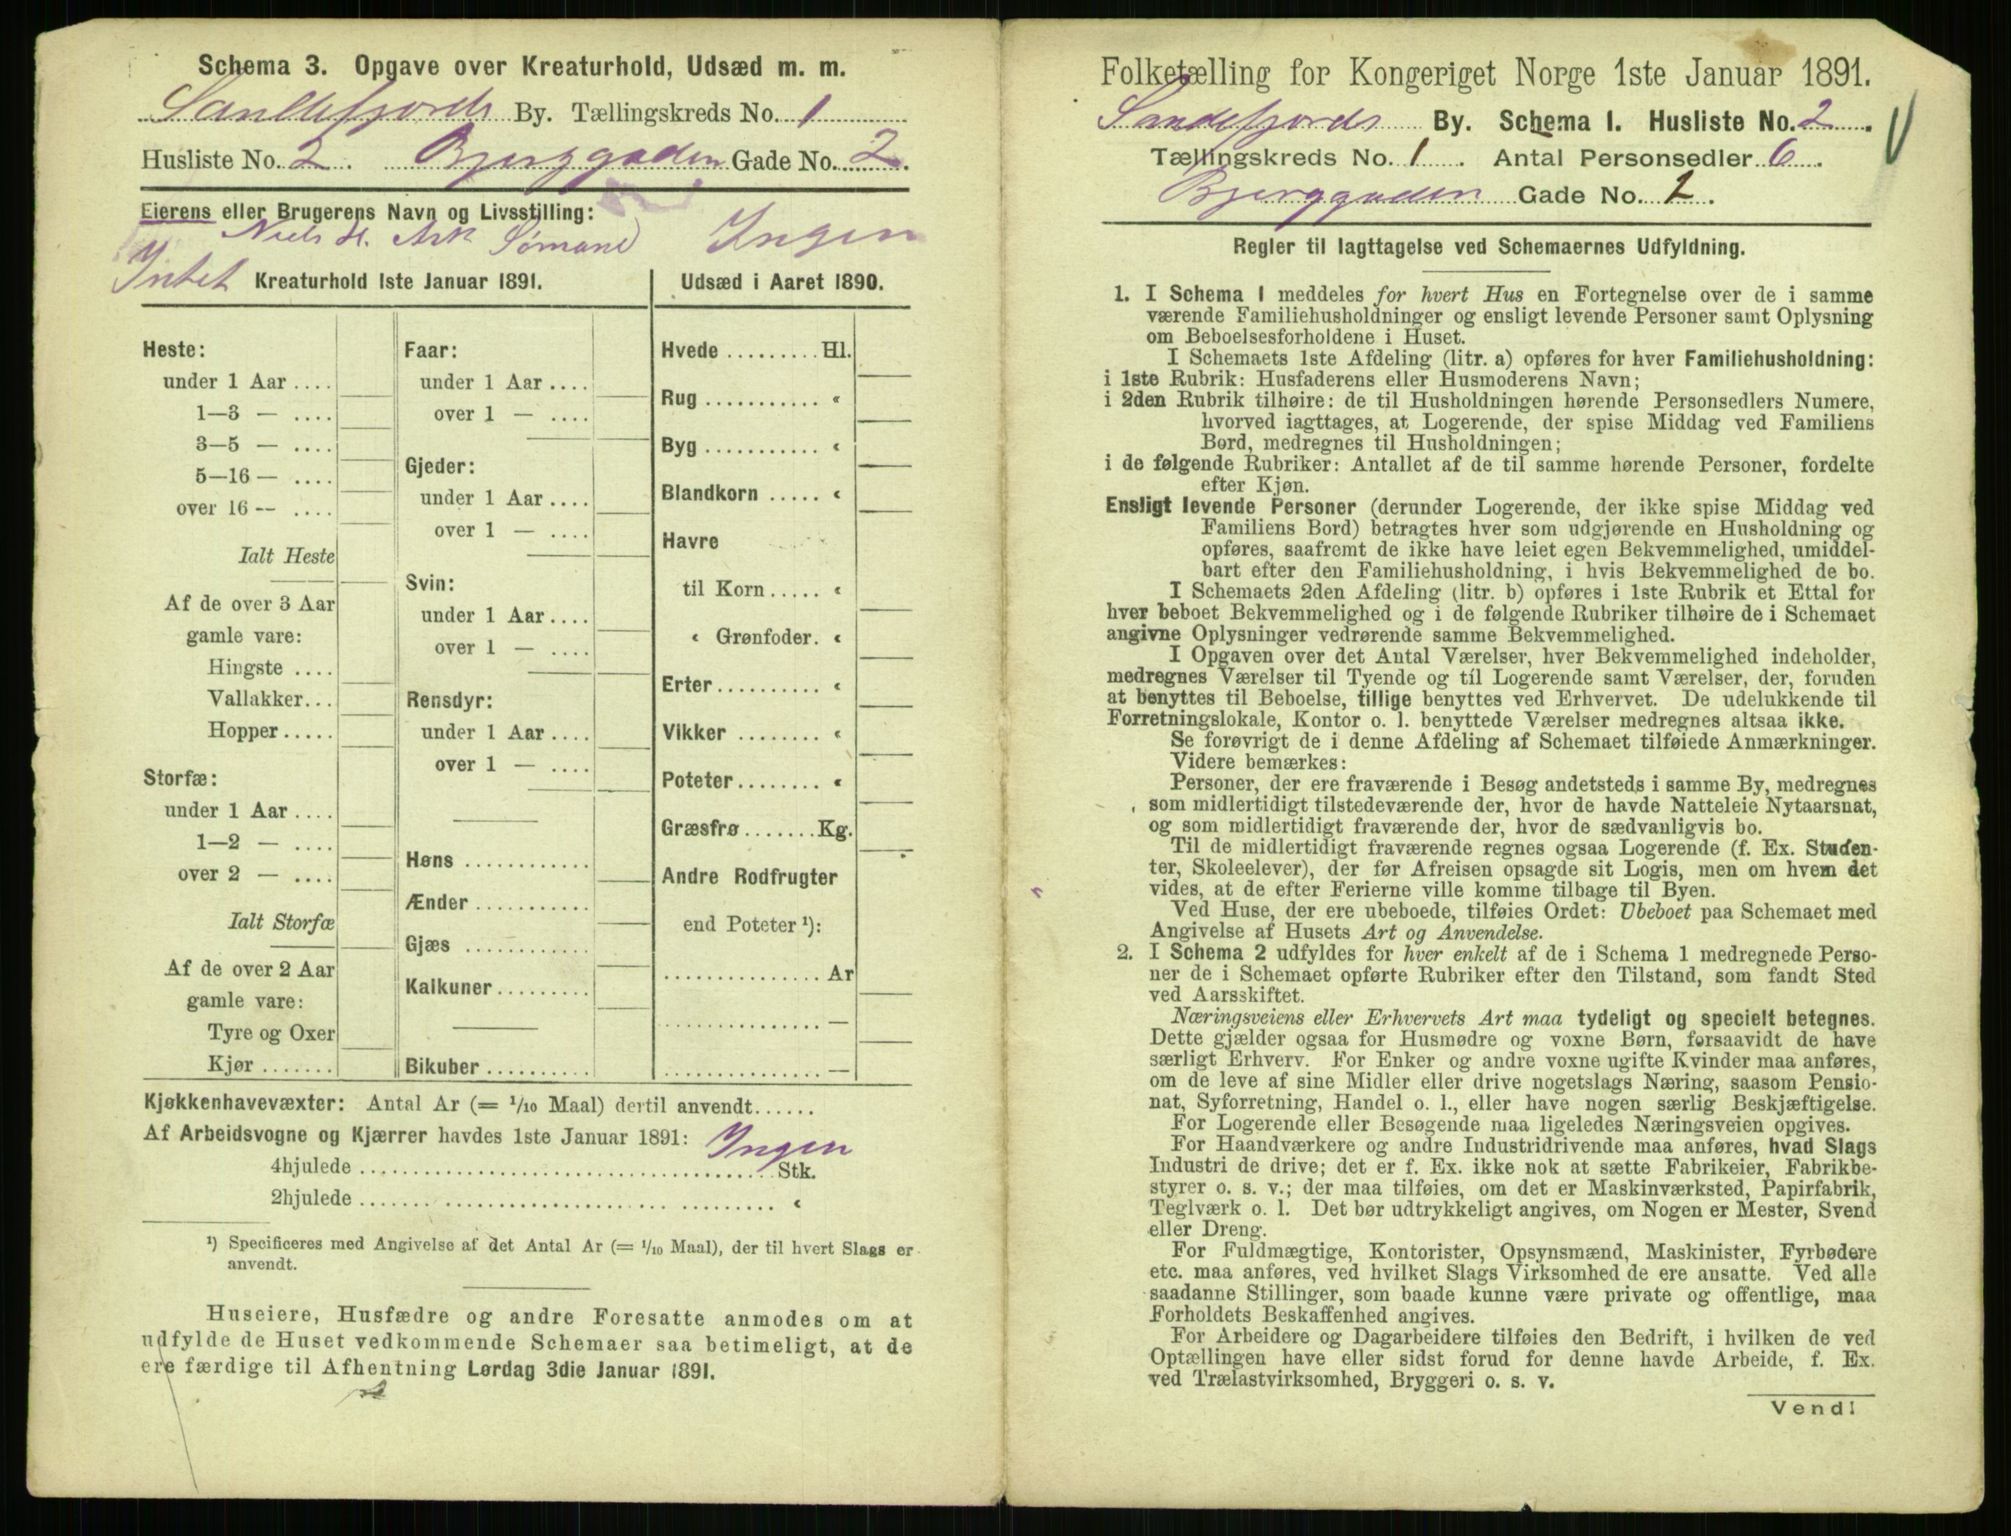 Schema 3. Opgave over Kreaturhold, Udsæd m. m.
Sandefjords By. Tællingskreds No. 1
Husliste No. 2. Bjerggaden Gade No. 2.
Eierens eller Brugerens Navn og Livsstilling:
Niels H. Ask Sømand Ingen
Intet Kreaturhold 1ste Januar 1891.
Heste:
under 1 Aar ....
1—3 — ....
3—5 — ....
5—16 — ....
over 16 -- ....
Ialt Heste
Af de over 3 Aar
gamle vare:
Hingste ....
Vallakker...
Hopper .....
Storfæ:
under 1 Aar ....
1—2 — ....
over 2 — ....
Ialt Storfæ
Af de over 2 Aar
gamle vare:
Tyre og Oxer
Kjør .......
Faar:
under 1 Aar ....
over 1 — ....
Gjeder:
under 1 Aar ....
over 1 — ....
Svin:
under 1 Aar ....
over 1 — ....
Rensdyr:
under 1 Aar ....
over 1 — ....
Høns ............
Ænder ...........
Gjæs ............
Kalkuner.........
Bikuber ..........
Udsæd i Aaret 1890.
Hvede ......... Hl.
Rug ........... «
Byg ........... «
Blandkorn ..... «
Havre
til Korn ..... «
« Grønfoder. «
Erter.......... «
Vikker ........ «
Poteter........ «
Græsfrø ....... Kg.
Andre Rodfrugter
end Poteter ¹):
............... Ar
............... —
............... —
Kjøkkenhavevæxter: Antal Ar (= 1/10 Maal) dertil anvendt......
Af Arbeidsvogne og Kjærrer havdes 1ste Januar 1891: Ingen
4hjulede ........................................ Stk.
2hjulede ........................................ «
¹) Specificeres med Angivelse af det Antal Ar (= 1/10 Maal), der til hvert Slags er
anvendt.
Huseiere, Husfædre og andre Foresatte anmodes om at
udfylde de Huset vedkommende Schemaer saa betimeligt, at de
ere færdige til Afhentning Lørdag 3die Januar 1891.
Folketælling for Kongeriget Norge 1ste Januar 1891.
Sandefjords By. Schema 1. Husliste No. 2.
Tællingskreds No. 1. Antal Personsedler 6.
Bjerggaden Gade No. 2.
Regler til Iagttagelse ved Schemaernes Udfyldning.
1. I Schema 1 meddeles for hvert Hus en Fortegnelse over de i samme
værende Familiehusholdninger og ensligt levende Personer samt Oplysning
om Beboelsesforholdene i Huset.
I Schemaets 1ste Afdeling (litr. a) opføres for hver Familiehusholdning:
i 1ste Rubrik: Husfaderens eller Husmoderens Navn;
i 2den Rubrik tilhøire: de til Husholdningen hørende Personsedlers Numere,
hvorved iagttages, at Logerende, der spise Middag ved Familiens
Bord, medregnes til Husholdningen;
i de følgende Rubriker: Antallet af de til samme hørende Personer, fordelte
efter Kjøn.
Ensligt levende Personer (derunder Logerende, der ikke spise Middag ved
Familiens Bord) betragtes hver som udgjørende en Husholdning og
opføres, saafremt de ikke have leiet egen Bekvemmelighed, umiddel-
bart efter den Familiehusholdning, i hvis Bekvemmelighed de bo.
I Schemaets 2den Afdeling (litr. b) opføres i 1ste Rubrik et Ettal for
hver beboet Bekvemmelighed og i de følgende Rubriker tilhøire de i Schemaet
angivne Oplysninger vedrørende samme Bekvemmelighed.
I Opgaven over det Antal Værelser, hver Bekvemmelighed indeholder,
medregnes Værelser til Tyende og til Logerende samt Værelser, der, foruden
at benyttes til Beboelse, tillige benyttes ved Erhvervet. De udelukkende til
Forretningslokale, Kontor o. l. benyttede Værelser medregnes altsaa ikke.
Se forøvrigt de i denne Afdeling af Schemaet tilføiede Anmærkninger.
Videre bemærkes:
Personer, der ere fraværende i Besøg andetsteds i samme By, medregnes
som midlertidigt tilstedeværende der, hvor de havde Natteleie Nytaarsnat,
og som midlertidigt fraværende der, hvor de sædvanligvis bo.
Til de midlertidigt fraværende regnes ogsaa Logerende (f. Ex. Studen-
ter, Skoleelever), der før Afreisen opsagde sit Logis, men om hvem det
vides, at de efter Ferierne ville komme tilbage til Byen.
Ved Huse, der ere ubeboede, tilføies Ordet: Ubeboet paa Schemaet med
Angivelse af Husets Art og Anvendelse.
2. I Schema 2 udfyldes for hver enkelt af de i Schema 1 medregnede Perso-
ner de i Schemaet opførte Rubriker efter den Tilstand, som fandt Sted
ved Aarsskiftet.
Næringsveiens eller Erhvervets Art maa tydeligt og specielt betegnes.
Dette gjælder ogsaa for Husmødre og voxne Børn, forsaavidt de have
særligt Erhverv. For Enker og andre voxne ugifte Kvinder maa anføres,
om de leve af sine Midler eller drive nogetslags Næring, saasom Pensio-
nat, Syforretning, Handel o. l., eller have nogen særlig Beskjæftigelse.
For Logerende eller Besøgende maa ligeledes Næringsveien opgives.
For Haandværkere og andre Industridrivende maa anføres, hvad Slags
Industri de drive; det er f. Ex. ikke nok at sætte Fabrikeier, Fabrikbe-
styrer o. s. v.; der maa tilføies, om det er Maskinværksted, Papirfabrik,
Teglværk o. l. Det bør udtrykkeligt angives, om Nogen er Mester, Svend
eller Dreng.
For Fuldmægtige, Kontorister, Opsynsmænd, Maskinister, Fyrbødere
etc. maa anføres, ved hvilket Slags Virksomhed de ere ansatte. Ved alle
saadanne Stillinger, som baade kunne være private og offentlige, maa
Forholdets Beskaffenhed angives.
For Arbeidere og Dagarbeidere tilføies den Bedrift, i hvilken de ved
Optællingen have eller sidst forud for denne havde Arbeide, f. Ex.
ved Trælastvirksomhed, Bryggeri o. s. v.
Vend!